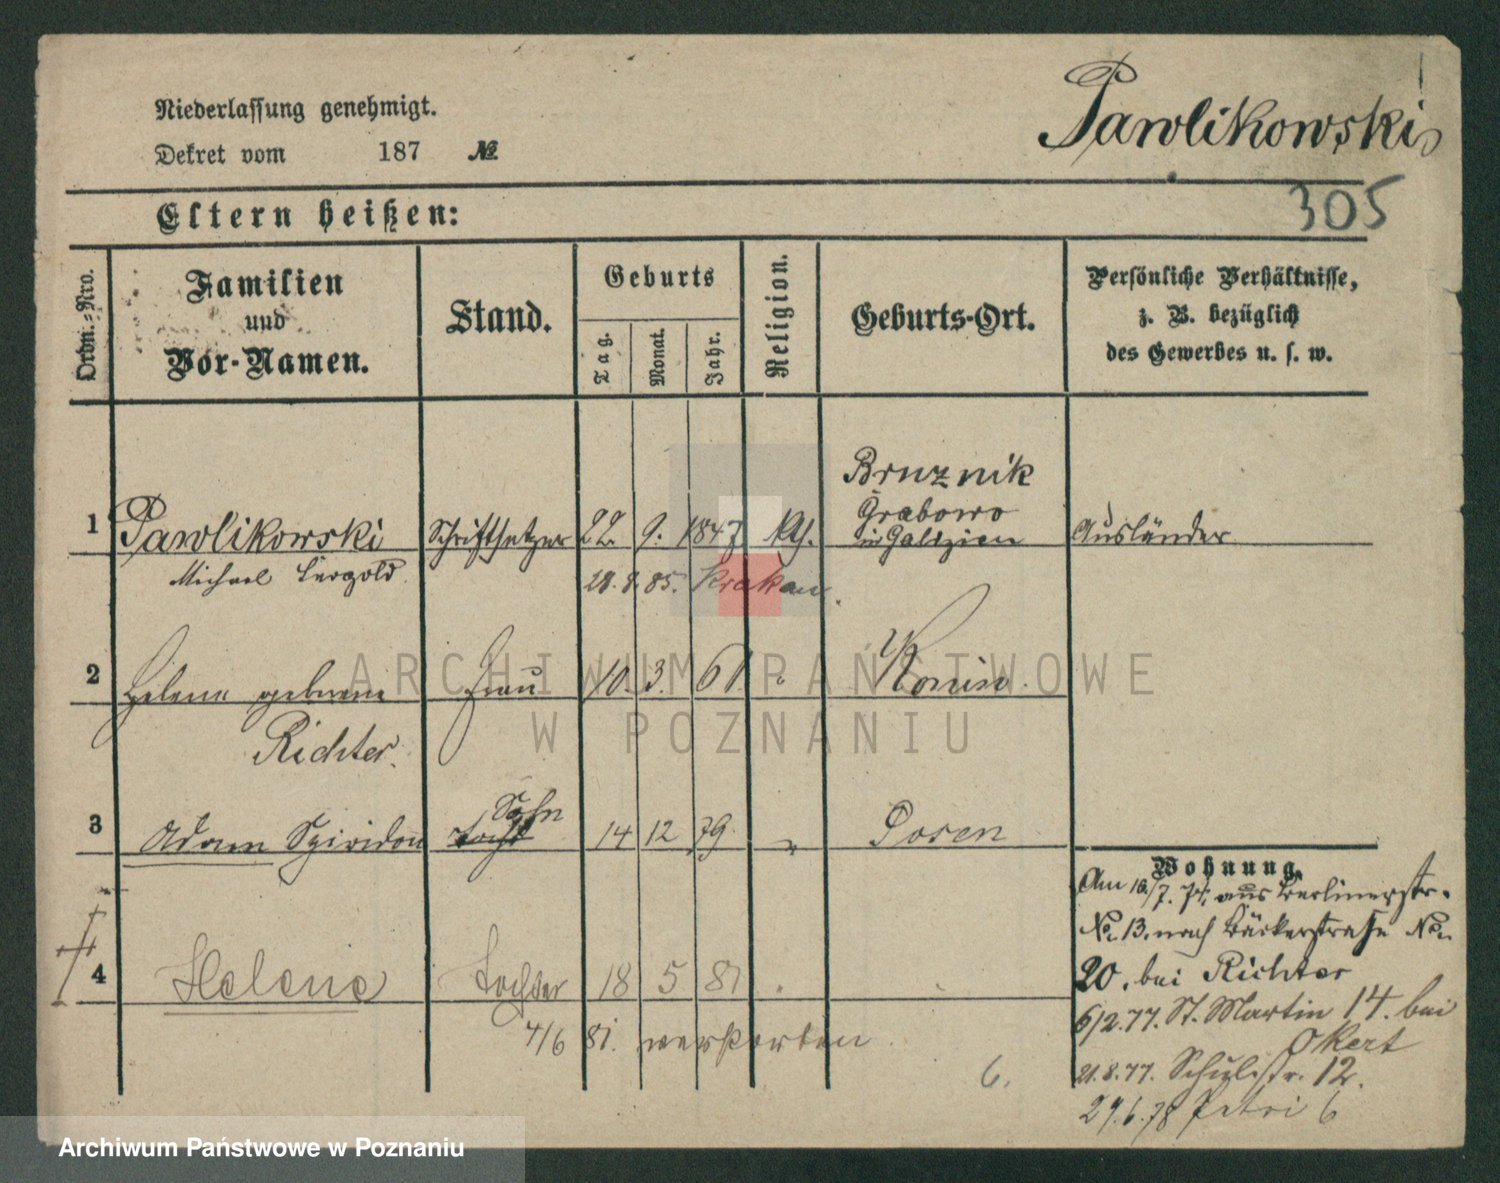 Niederlassung genehmigt.
Dekret vom 187 №
Pawlikowski
305
Eltern heißen:
Ordn.-Nro.
Familien
und
Vor-Namen.
Stand.
Geburts
Tag.
Monat.
Jahr.
Religion.
Geburts-Ort.
Persönliche Verhältnisse,
z. B. bezüglich
des Gewerbes u. s. w.
Bruznik
Grabowo
in Galizien
1 Pawlikowski Schriftsetzer 22. 9. 1847 Kth. Ausländer
Michael Leopold 28.8.85. Krakau.
2 Helene geborene Frau 10. 3. 61. " Konin.
Richter.
Sohn
3 Adam Spiridon Tocht 14 12 79. " Posen
4 Helene Tochter 18 5 81 "
4/6 81. verstorben
6.
Wohnung.
Am 16/7. 74. aus Berlinerstr.
No. 13. nach Bäckerstraße No.
20. bei Richter
6/2.77. St. Martin 14. bei
Okert
21.8.77. Schulstr. 12.
29.6.78 Petri 6
ARCHIWUM PAŃSTWOWE
W POZNANIU
Archiwum Państwowe w Poznaniu